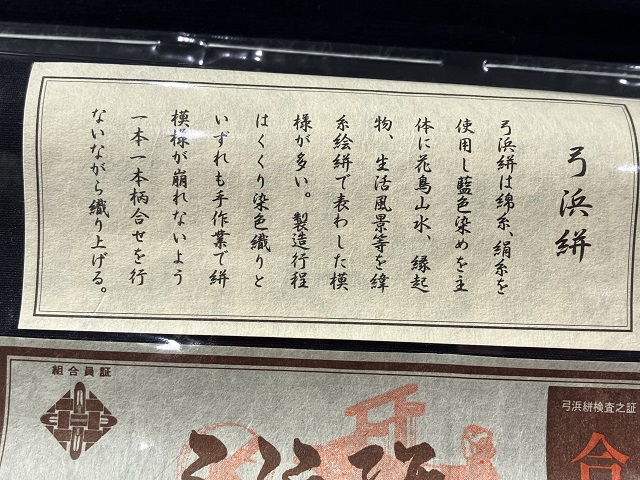 弓浜絣
弓浜絣は綿糸、絹糸を
使用し藍色染めを主
体に花鳥山水、縁起
物、生活風景等を緯
糸絵絣で表わした模
様が多い。製造行程
はくくり染色織りと
いずれも手作業で絣
模様が崩れないよう
一本一本柄合せを行
ないながら織り上げる。
組合員証
弓浜絣検査之証
合
弓浜絣